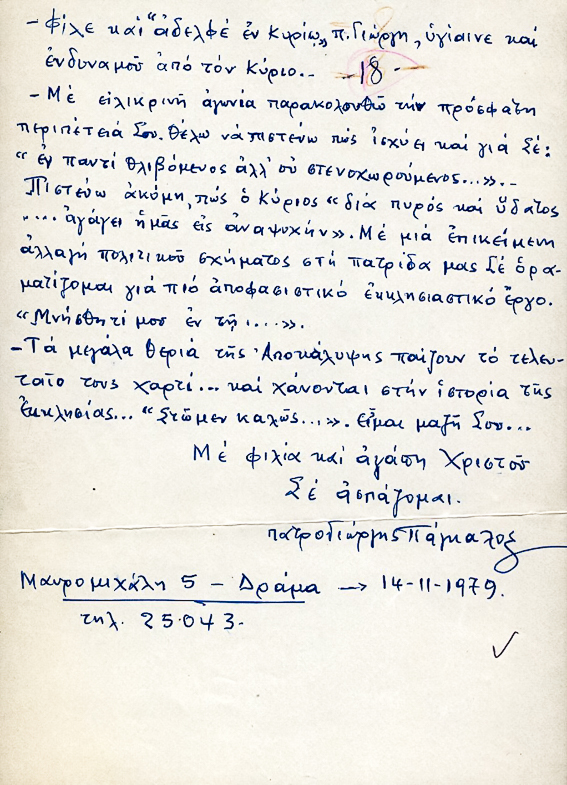 - Φίλε καί "ἀδελφέ ἐν Κυρίῳ", π. Γιώργη, ὑγίαινε καί
ἐνδυναμοῦ ἀπό τόν Κύριο.-
-18-
- Μέ εἰλικρινῆ ἀγωνία παρακολουθῶ τήν πρόσφατη
περιπέτειά Σου. Θέλω νά πιστεύω πώς ἰσχύει καί γιά Σέ:
"ἐν παντί θλιβόμενος ἀλλ' οὐ στενοχωρούμενος...».-
Πιστεύω ἀκόμη, πώς ὁ Κύριος "διά πυρός καί ὕδατος
".... ἀγάγει ἡμᾶς εἰς ἀναψυχήν». Μέ μιά ἐπικείμενη
ἀλλαγή πολιτικοῦ σχήματος στή πατρίδα μας Σέ ὁρα-
ματίζομαι γιά πιό ἀποφασιστικό ἐκκλησιαστικό ἔργο.
"Μνήσθητί μου ἐν τῇ....».
- Τά μεγάλα θεριά τῆς Ἀποκάλυψης παίζουν τό τελευ-
ταῖο τους χαρτί... καί χάνονται στήν ἱστορία τῆς
Ἐκκλησίας... "Στῶμεν καλῶς...». Εἶμαι μαζῆ Σου...
Μέ φιλία καί ἀγάπη Χριστοῦ
Σέ ἀσπάζομαι.
πατρογιώργης Πάγκαλος
Μαυρομιχάλη 5 - Δράμα → 14-11-1979.
τηλ. 25.043.-